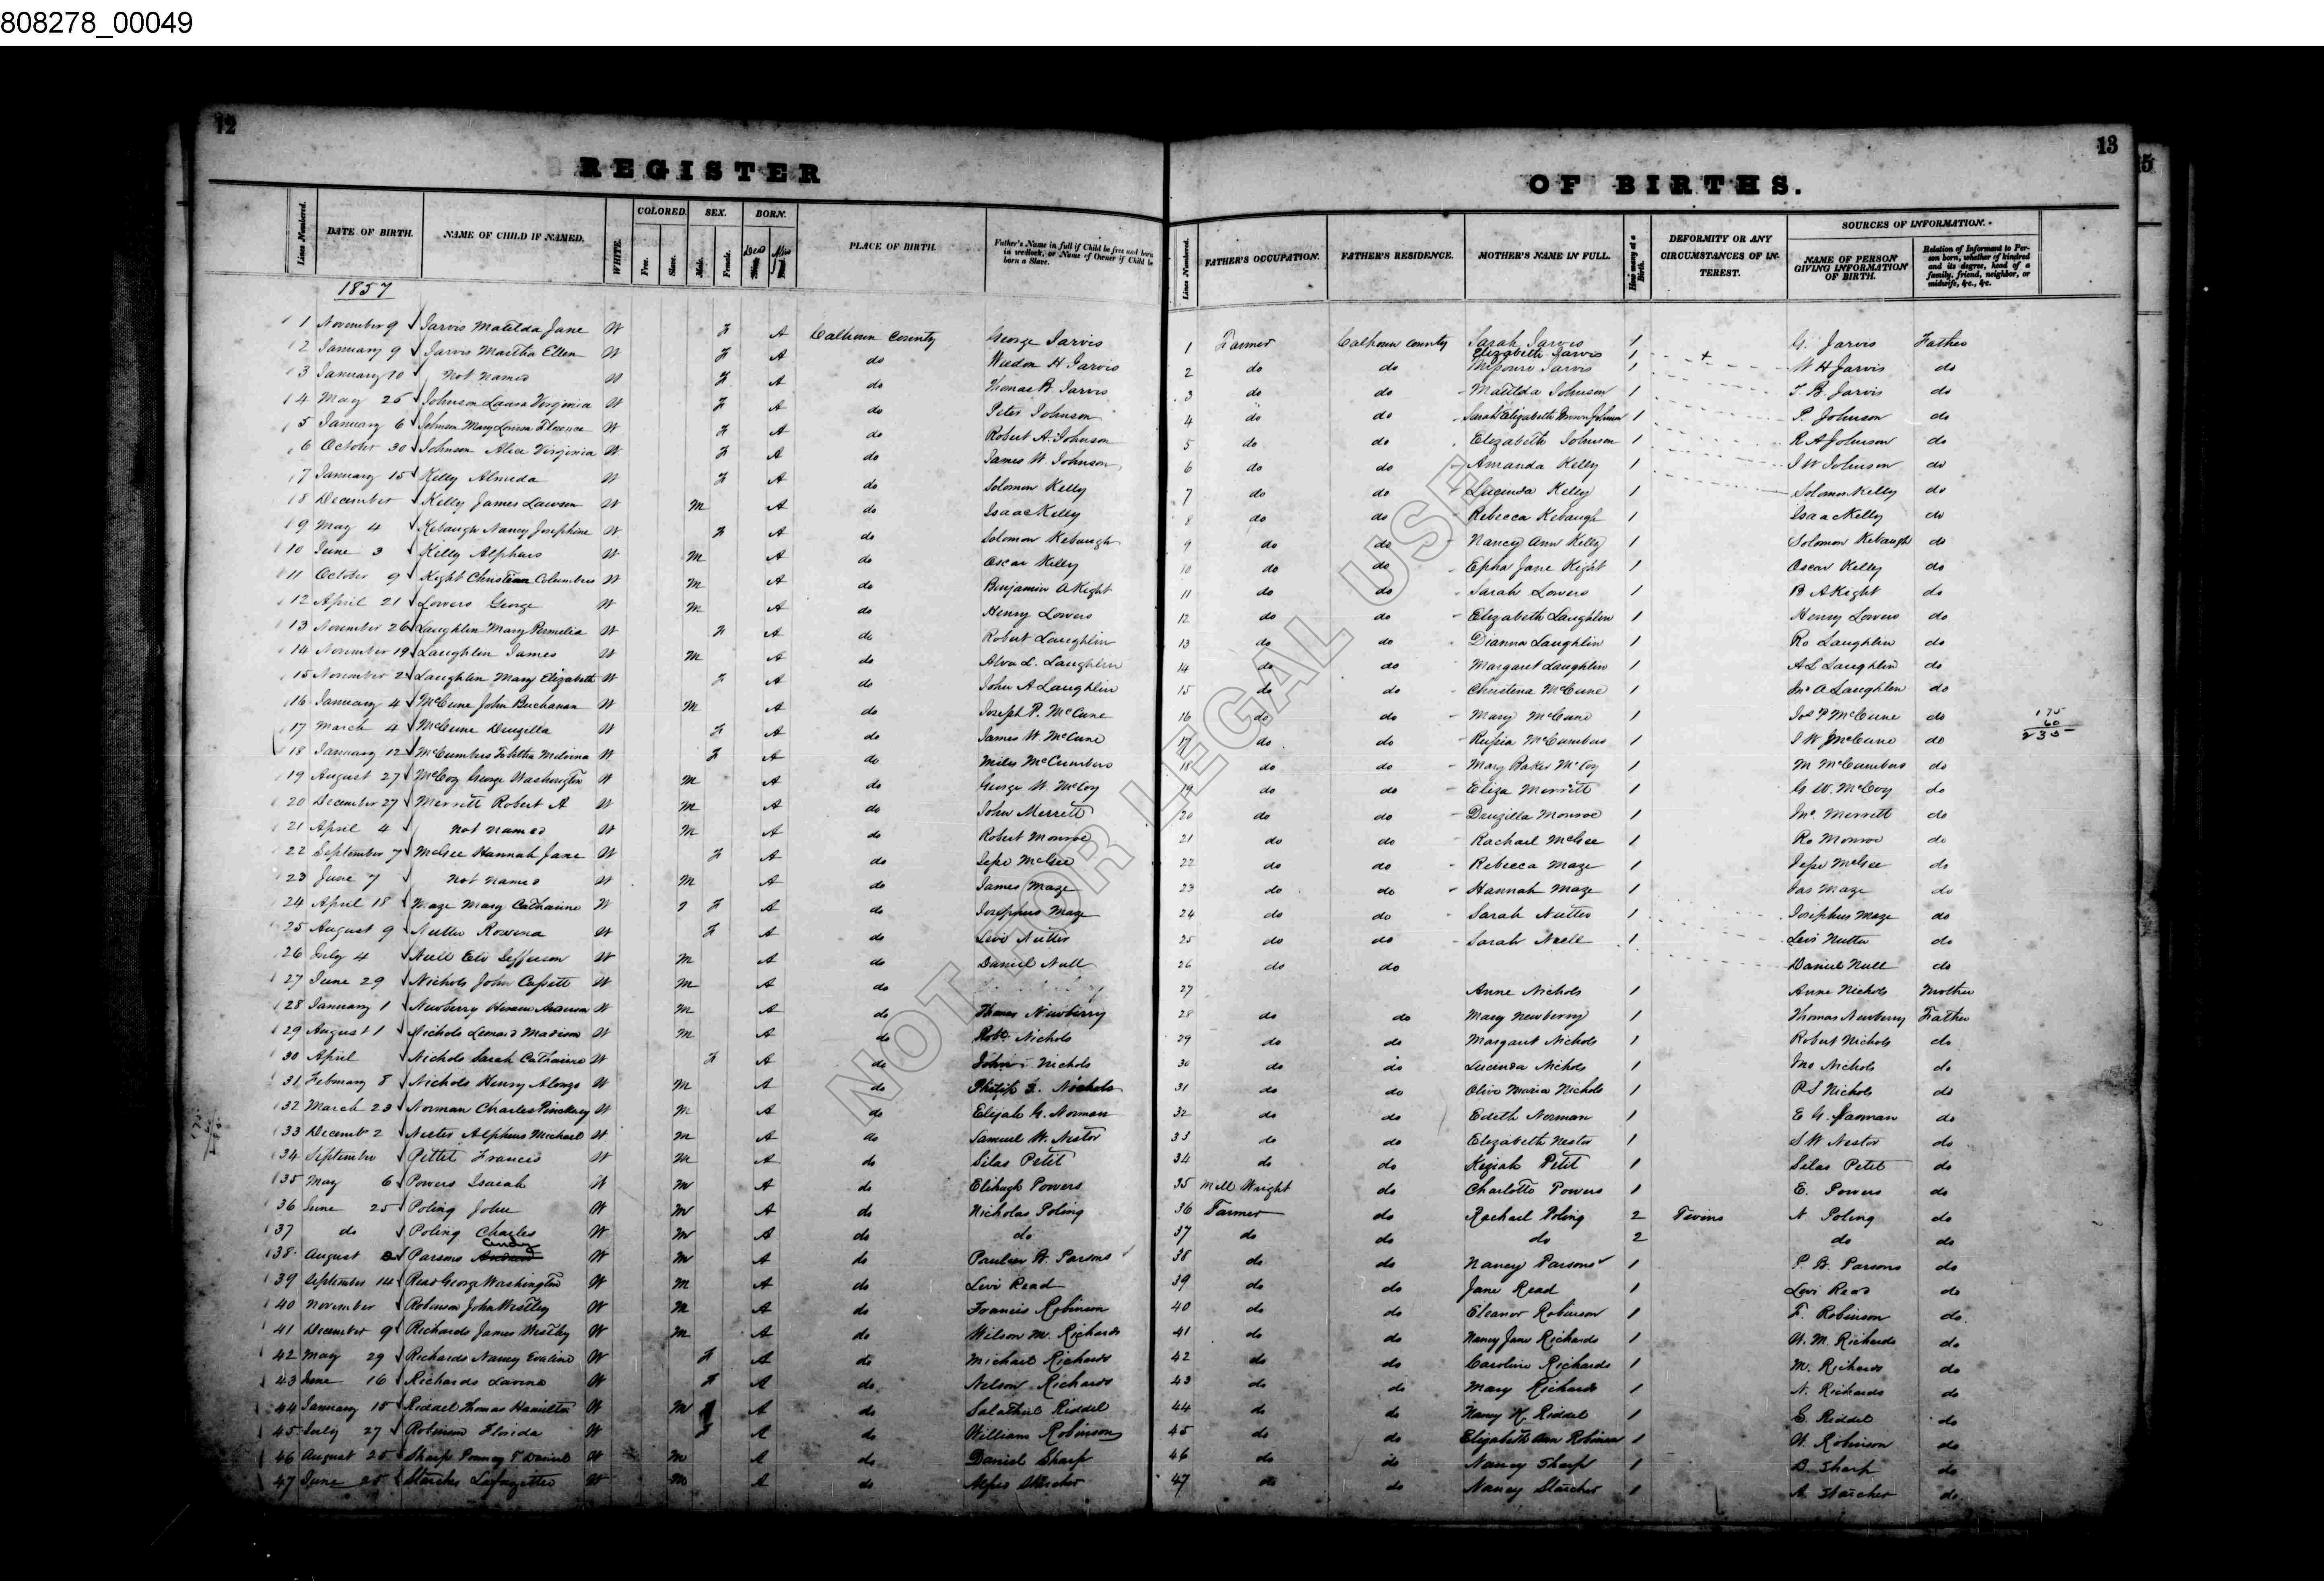 808278_00049
12
REGISTER
Lines Numbered. DATE OF BIRTH. NAME OF CHILD IF NAMED. WHITE. COLORED. Free. Slave. SEX. Male. Female. BORN. Dead Alive PLACE OF BIRTH. Father's Name in full if Child be free and born in wedlock, or Name of Owner if Child be born a Slave.
1857
1 November 9 Jarvis Matilda Jane W F A Calhoun County George Jarvis
2 January 9 Jarvis Martha Ellen W F A do Weedon H Jarvis
3 January 10 Not Named W F A do Thomas B. Jarvis
4 May 25 Johnson Laura Virginia W F A do Peter Johnson
5 January 6 Johnson Mary Louisa Florence W F A do Robert A. Johnson
6 October 30 Johnson Alice Virginia W F A do James W. Johnson
7 January 15 Kelly Almeda W F A do Solomon Kelly
8 December Kelly James Lawson W M A do Isaac Kelly
9 May 4 Kebaugh Nancy Josephine W F A do Solomon Kebaugh
10 June 3 Kelly Alpheus W M A do Oscar Kelly
11 October 9 Kight Christian Columbus W M A do Benjamin A Kight
12 April 21 Lowers George W M A do Henry Lowers
13 November 26 Laughlin Mary Permelia W F A do Robert Laughlin
14 November 19 Laughlin James W M A do Alva L. Laughlin
15 November 2 Laughlin Mary Elizabeth W F A do John A Laughlin
16 January 4 McCune John Buchanan W M A do Joseph P. McCune
17 March 4 McCune Druzilla W F A do James W. McCune
18 January 12 McCumbers Tabitha W F A do Miles McCumbers
19 August 27 McCoy George Washington W M A do George W. McCoy
20 December 27 Merrett Robert A W M A do John Merrett
21 April 4 Not Named W M A do Robert Monroe
22 September 7 McGee Hannah Jane W F A do Jesse McGee
23 June 7 Not Named W M A do James Maze
24 April 18 Maze Mary Catharine W F A do Josephus Maze
25 August 9 Nutter Rowena W F A do Levi Nutter
26 July 4 Null Jefferson W M A do Daniel Null
27 June 29 Nichols John W M A do
28 January 1 Newberry W M A do Thomas Newberry
29 August 1 Nichols Leonard Madison W M A do Robt Nichols
30 April Nichols Sarah Catharine W F A do John Nichols
31 February 8 Nichols Henry Alonzo W M A do Philip S. Nichols
32 March 23 Norman Charles Pinckney W M A do Elijah G. Norman
33 Decemb 2 Nester Alpheus Michael W M A do Samuel W. Nestor
34 September Pettit Francis W M A do Silas Petit
35 May 6 Powers Isaiah W M A do Elihugh Powers
36 June 25 Poling John W M A do Nicholas Poling
37 do Poling Charles W M A do do
38 August Parsons Andy W M A do W. Parsons
39 September 14 Read George Washington W M A do Levi Read
40 November Robinson John Westley W M A do Francis Robinson
41 December 9 Richards James Westley W M A do Wilson M. Richards
42 May 29 Richards Nancy Evaline W F A do Michael Richards
43 June 16 Richards Lavina W F A do Nelson Richards
44 January 15 Riddel Thomas Hamilton W M A do Salathiel Riddel
45 July 27 Robinson Florida W F A do William Robinson
46 August 25 Sharp Daniel W M A do Daniel Sharp
47 June 25 Starcher Lafayette W M A do Starcher
13
OF BIRTHS.
Lines Numbered. FATHER'S OCCUPATION. FATHER'S RESIDENCE. MOTHER'S NAME IN FULL. How many at a Birth. DEFORMITY OR ANY CIRCUMSTANCES OF INTEREST. SOURCES OF INFORMATION. NAME OF PERSON GIVING INFORMATION OF BIRTH. Relation of Informant to Person born, whether of kindred and its degree, head of a family, friend, neighbor, or midwife, &c., &c.
1 Farmer Calhoun County Sarah Jarvis 1 G. Jarvis Father
Elizabeth Jarvis 1
2 do do Missouri Jarvis 1 W H Jarvis do
3 do do Matilda Johnson 1 T. B. Jarvis do
4 do do Sarah Elizabeth Brown Johnson 1 P. Johnson do
5 do do Elizabeth Johnson 1 R A Johnson do
6 do do Amanda Kelly 1 J W Johnson do
7 do do Lucinda Kelly 1 Solomon Kelly do
8 do do Rebecca Kebaugh 1 Isaac Kelly do
9 do do Nancy Ann Kelly 1 Solomon Kebaugh do
10 do do Epha Jane Kight 1 Oscar Kelly do
11 do do Sarah Lowers 1 B A Kight do
12 do do Elizabeth Laughlin 1 Henry Lowers do
13 do do Dianna Laughlin 1 Ro Laughlin do
14 do do Margaret Laughlin 1 A L Laughlin do
15 do do Christena McCune 1 Jno A Laughlin do
16 do do Mary McCune 1 Jos P McCune do
175
60
235
17 do do McCumbers 1 J W McCune do
18 do do Mary Baker McCoy 1 M McCumbers do
19 do do Eliza Merrett 1 G W. McCoy do
20 do do Druzilla Monroe 1 Jno. Merrett do
21 do do Rachael McGee 1 Ro Monroe do
22 do do Rebecca Maze 1 Jesse McGee do
23 do do Hannah Maze 1 Jas Maze do
24 do do Sarah Nutter 1 Josephus Maze do
25 do do Sarah Null 1 Levi Nutter do
26 do do Daniel Null do
27 Anne Nichols 1 Anne Nichols Mother
28 do do Mary Newberry 1 Thomas Newberry Father
29 do do Margaret Nichols 1 Robert Nichols do
30 do do Lucinda Nichols 1 Jno Nichols do
31 do do Olive Maria Nichols 1 P S Nichols do
32 do do Edith Norman 1 E G. Norman do
33 do do Elizabeth Nestor 1 S W Nestor do
34 do do Keziah Petit 1 Silas Petit do
35 Mill Wright do Charlotte Powers 1 E. Powers do
36 Farmer do Rachael Poling 2 Twins N. Poling do
37 do do do 2 do do
38 do do Nancy Parsons 1 P. B. Parsons do
39 do do Jane Read 1 Levi Read do
40 do do Eleanor Robinson 1 F. Robinson do.
41 do do Nancy Jane Richards 1 W. M. Richards do
42 do do Caroline Richards 1 M. Richards do
43 do do Mary Richards 1 N. Richards do
44 do do Nancy K. Riddel 1 S. Riddel do
45 do do Elizabeth Ann Robinson 1 W. Robinson do
46 do do Nancy Sharp 1 D. Sharp do
47 do do Nancy Starcher 1 A. Starcher do
NOT FOR LEGAL USE